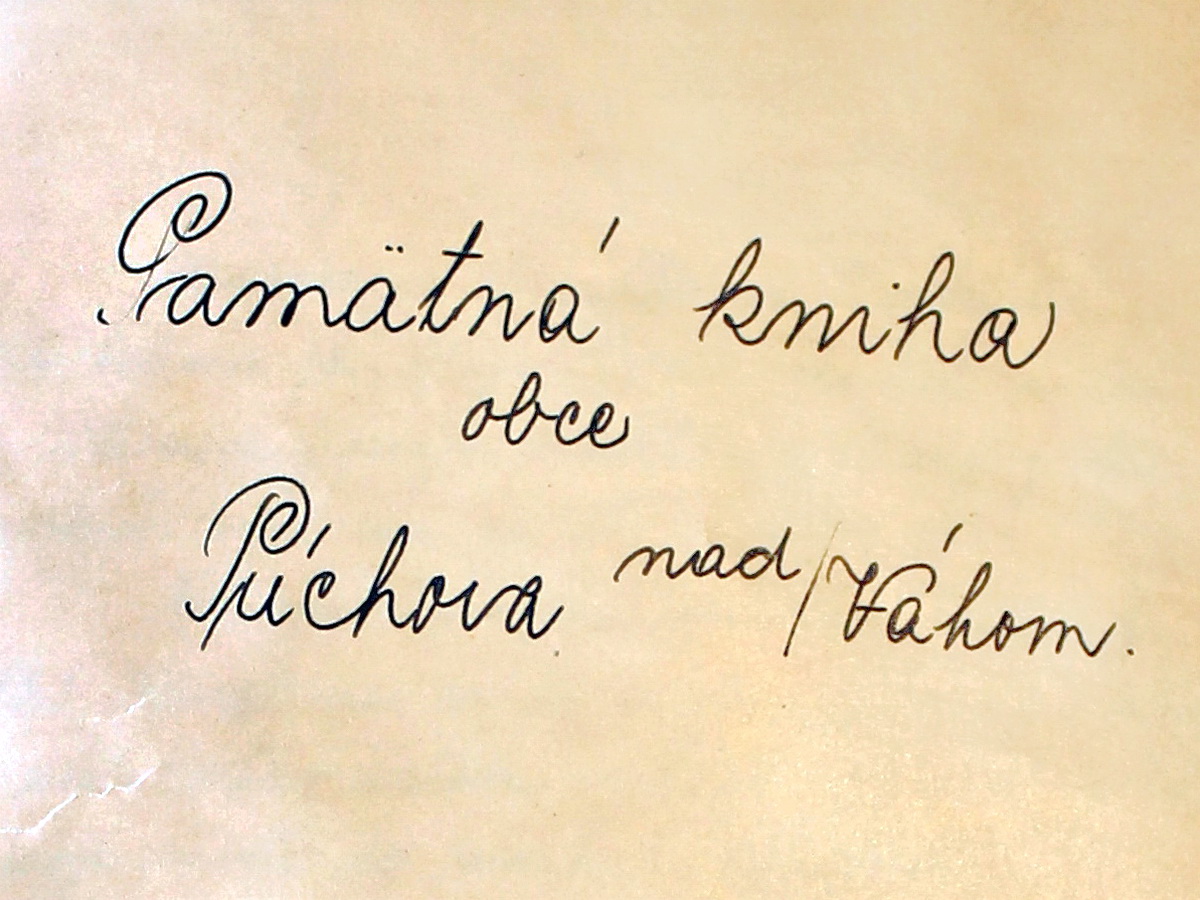 Pamätná kniha
obce
Púchova nad/Váhom.